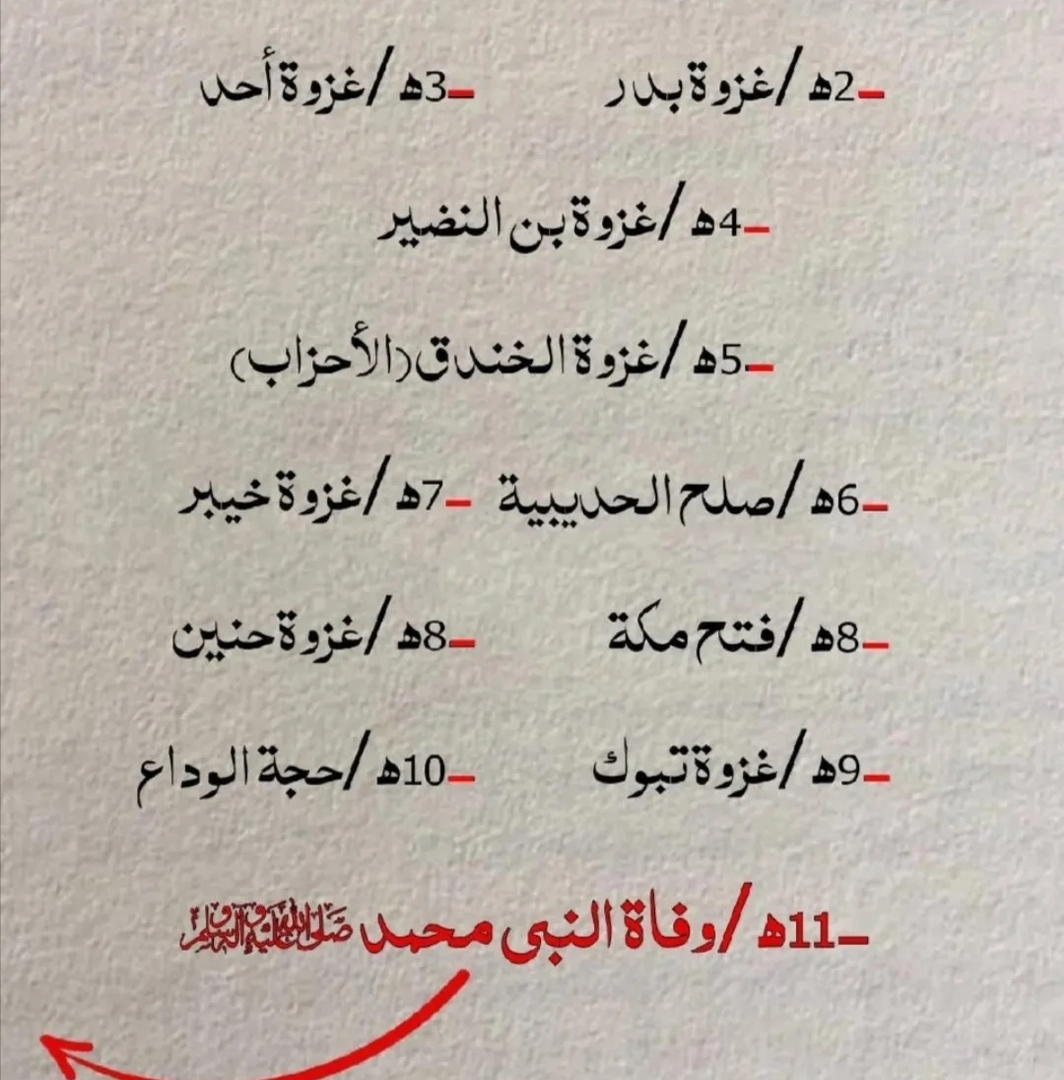 _2ه /غزوة بدر _3ه /غزوة أحد
_4ه /غزوة بن النضير
_5ه /غزوة الخندق (الأحزاب)
_6ه /صلح الحديبية _7ه /غزوة خيبر
_8ه /فتح مكة _8ه /غزوة حنين
_9ه /غزوة تبوك _10ه /حجة الوداع
_11ه /وفاة النبي محمد ﷺ